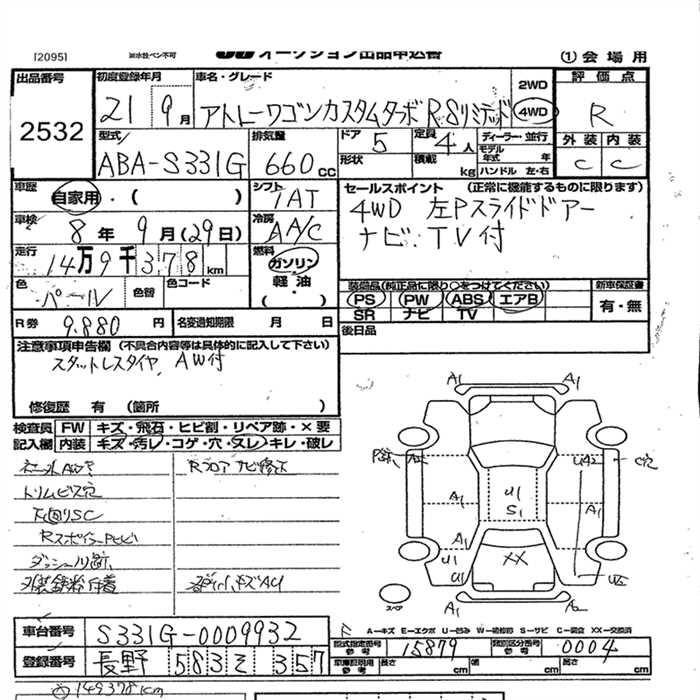 [2095] 油水性ペン不可 オークション出品申込書 ① 会場用
出品番号 初度登録年月 車名・グレード 2WD 評価点
2532 21 9月 アトレーワゴンカスタムターボRSリミテッド 4WD R
型式 排気量 ドア 5 定員 4人 ディーラー・並行 外装 内装
ABA-S331G 660cc 形状 積載 kg モデル年式 年 ハンドル 左・右 C C
車歴 自家用・( ) シフト IAT セールスポイント (正常に機能するものに限ります)
車検 8年 9月(29日) 冷房 AA/C 4WD 左Pスライドドアー
走行 14万9千378km 燃料 ガソリン 軽油 ( ) ナビ:TV付
色 パール 色替 色コード 装備品(純正品に限り○をつけてください) 新車保証書
PS PW ABS エアB 有・無
SR ナビ TV
R券 9.880円 名変通知期限 月 日 後日品
注意事項申告欄 (不具合内容等は具体的に記入して下さい)
スタットレスタイヤ, AW付
修復歴 有 (箇所 )
検査員 FW キズ・飛石・ヒビ割・リペア跡・×要
記入欄 内装 キズ・汚レ・コゲ・穴・スレ・キレ・破レ
社外AW Rフロア ナビ
トリムビス穴
下回りSC
Rスポイラー
A1 A1
A1 A1
U1
S1
A1 A1
A1
U1 U1 XX
スペア A1 A2
車台番号 S331G-0009932 A-キズ E-エクボ U-凹み W-補修跡 S-サビ C-腐食 XX-交換済
型式指定番号 参考 15879 類別区分番号 参考 0004
登録番号 長野 583 そ 357 車庫証明用 参考 長さ cm 幅 cm 高さ cm
149378km